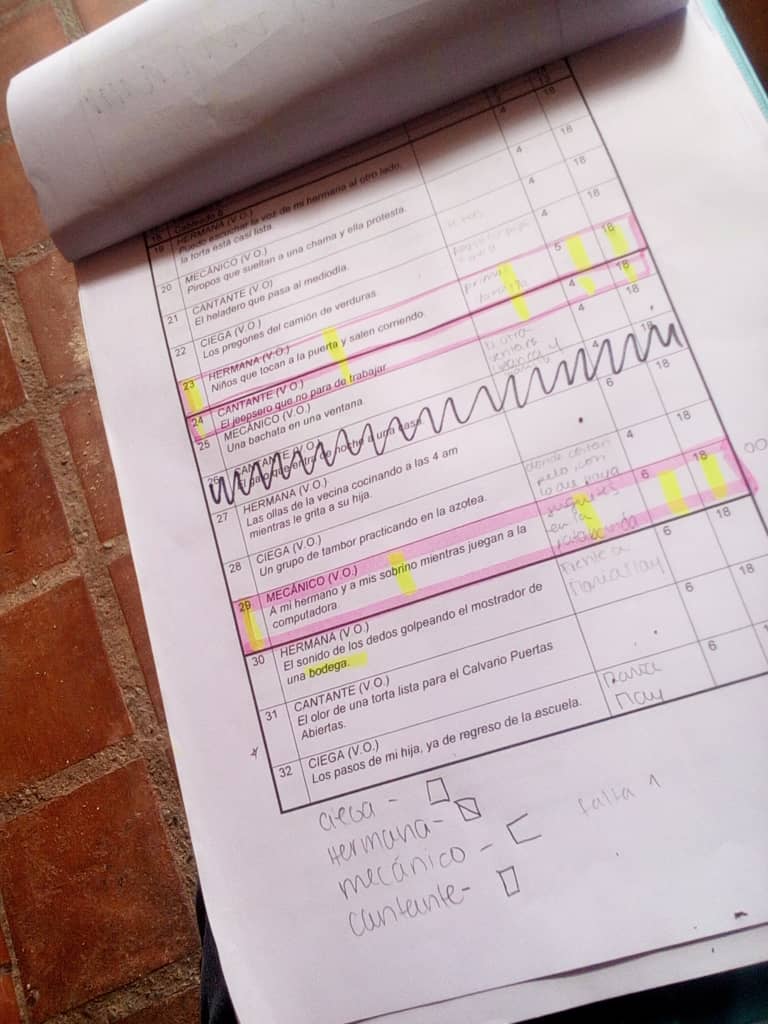 19 HERMANA (V.O.)
Puedo escuchar la voz de mi hermana al otro lado,
la torta está casi lista.
4 18
20 MECÁNICO (V.O.)
Piropos que sueltan a una chama y ella protesta.
4 18
21 CANTANTE (V.O.)
El heladero que pasa al mediodía.
4 18
22 CIEGA (V.O.)
Los pregones del camión de verduras.
4 18
23 HERMANA (V.O.)
Niños que tocan a la puerta y salen corriendo.
5 18
24 CANTANTE (V.O.)
El jeepsero que no para de trabajar
4 18
25 MECÁNICO (V.O.)
Una bachata en una ventana.
4 18
26 CANTANTE (V.O.)
El gato que entra de noche a una casa
4 18
27 HERMANA (V.O.)
Las ollas de la vecina cocinando a las 4 am
mientras le grita a su hija.
6 18
28 CIEGA (V.O.)
Un grupo de tambor practicando en la azotea.
4 18
29 MECÁNICO (V.O.)
A mi hermano y a mis sobrino mientras juegan a la
computadora
6 18
30 HERMANA (V.O.)
El sonido de los dedos golpeando el mostrador de
una bodega.
frente a
María May
6 18
31 CANTANTE (V.O.)
El olor de una torta lista para el Calvario Puertas
Abiertas.
6 18
32 CIEGA (V.O.)
Los pasos de mi hija, ya de regreso de la escuela.
María
May
6
ciega -
Hermana -
mecánico - falta 1
cantante -